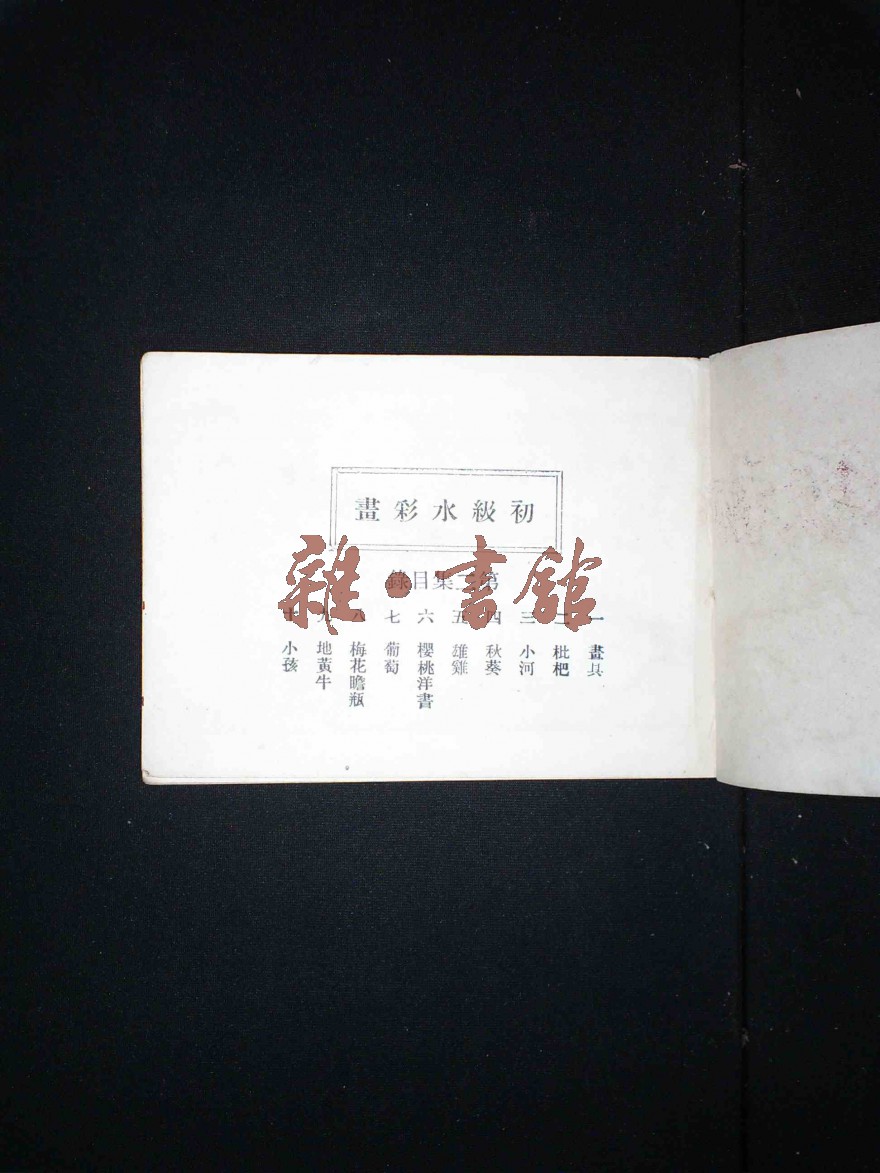 初級水彩畫
第集目錄
一 畫具
二 枇杷
三 小河
四 秋葵
五 雄雞
六 櫻桃洋書
七 葡萄
八 梅花瞻瓶
九 地黃牛
十 小孩
雜·書館